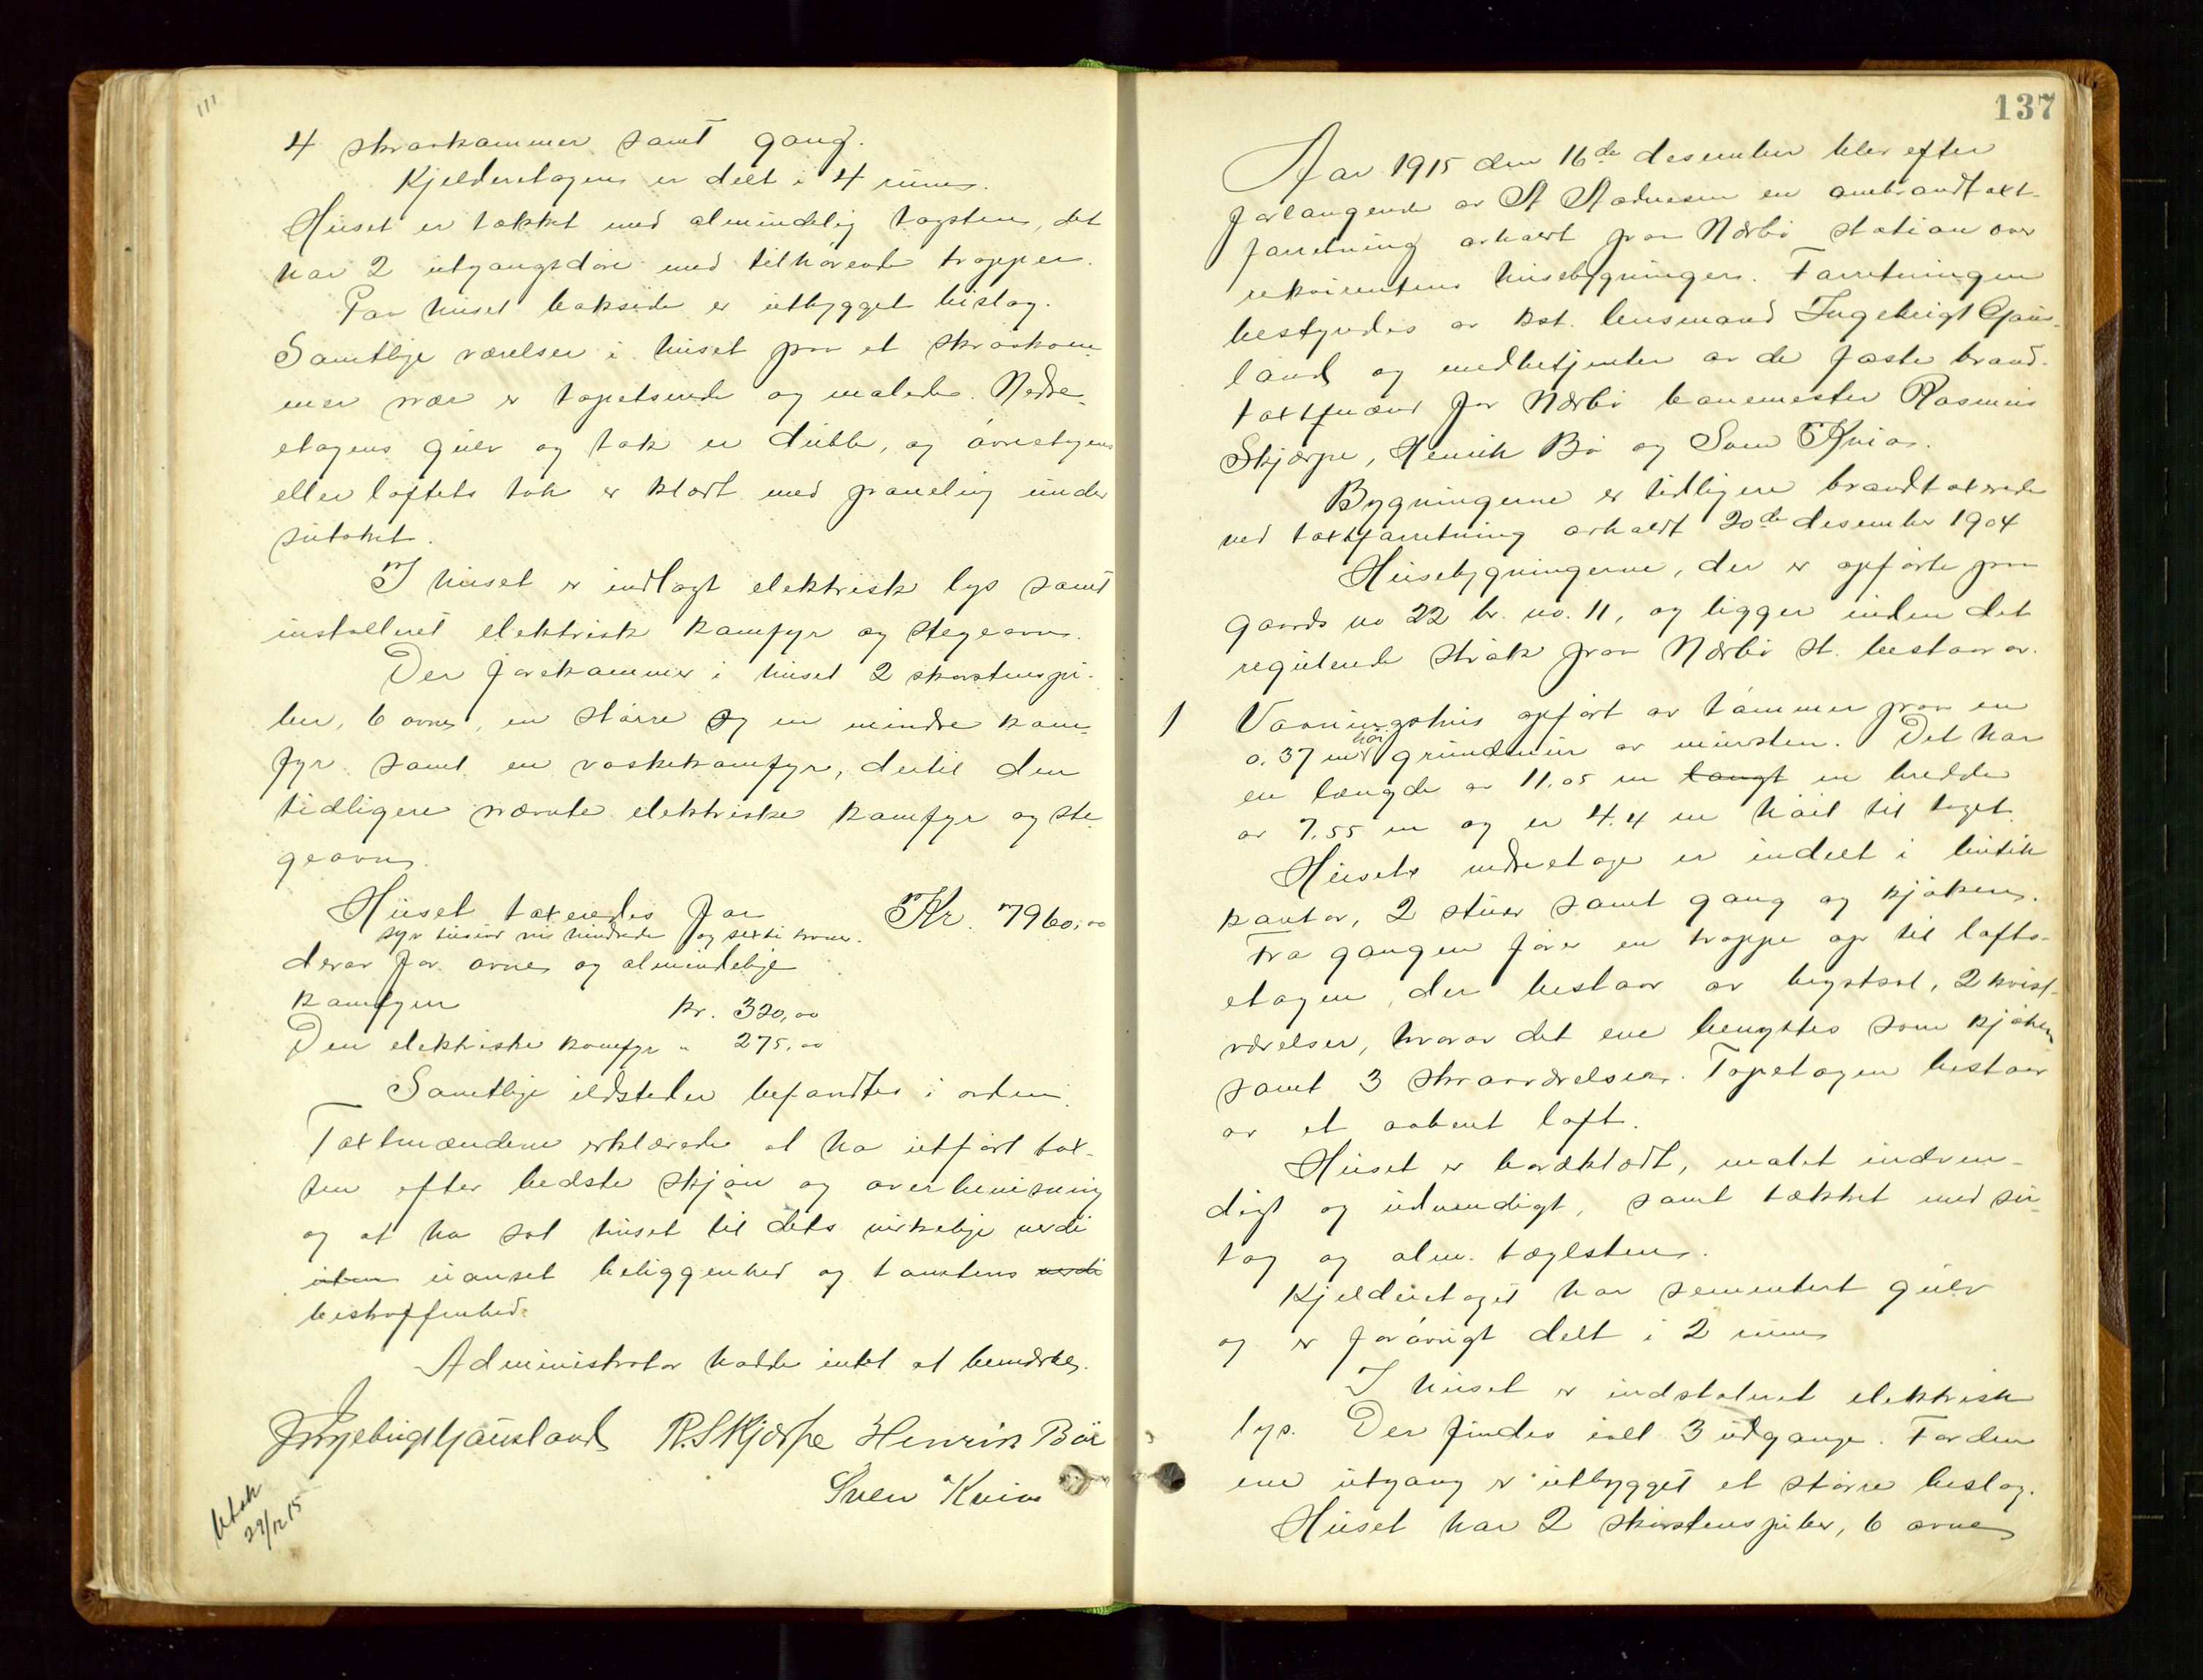 111
4 skraakammer samt gang.
Kjelderetagen er delt i 4 rum.
Huset er tækket med almindelig tagsten, det
har 2 utgangsdøre med tilhørende trapper.
Paa huset bakside er utbygget bislag.
Samtlige værelser i huset paa et skraakam-
mer nær er tapetserede og malede. Nedre-
etagens gulv og tak er duble, og øvreetagens
eller loftets tak er klædt med paneling under
sutaket.
I huset er indlagt elektrisk lys samt
installeret elektrisk kamfyr og stegeovn.
Der forekommer i huset 2 skorstenspi-
ber, 6 ovne, en større og en mindre kam-
fyr samt en vaskekamfyr, dertil den
tidligere nævnte elektriske kamfyr og ste-
geovn.
Huset taxeredes for Kr. 7960,00
syv tusind ni hundrede og sexti kroner.
derav for ovne og almindelige
kamfyrer kr. 320,00
Den elektriske komfyr " 275,00
Samtlige ildsteder befandtes i orden.
Taxtmændene erklærede at ha utført tax-
ten efter bedste skjøn og overbevisning
og at ha sat huset til dets virkelige verdi
uten uanset beliggenhed og tomtens verdi
beskaffenhed.
Administrator hadde intet at bemerke.
Ingebrigt Gausland R. Skjærpe Henrik Bø
Sven Kvia
Utsk
29/12 15
137
Aar 1915 den 16de desember blev efter
forlangende av A Aadnesen en ombrandtaxt-
forretning avholdt paa Nærbø station over
rekvirentens husebygninger. Forretningen
bestyredes av kst. lensmand Ingebrigt Gaus-
land og medbetjentes av de faste brand-
taxtmænd for Nærbø banemester Rasmus
Skjærpe, Henrik Bø og Sven Kvia.
Bygningerne er tidligere brandtaxerede
ved taxtforretning avholdt 20de desember 1904
Husebygningerne, der er opførte paa
gaards no 22 br. no. 11, og ligger inden det
regulerede strøk paa Nærbø st. bestaar av.
1 Vaaningshus opført av tømmer paa en
0.37 m høi grundmur av mursten. Det har
en længde av 11.05 m langt en bredde
av 7.55 m og er 4.4 m høit til taget.
Husets nedreetage er inddelt i butik
kontor, 2 stuer samt gang og kjøken.
Fra gangen fører en trappe op til lofts-
etagen, der bestaar av bygtsal, 2 kvist-
værelser, hvorav det ene benyttes som kjøken
samt 3 skraaværelser. Topetagen bestaar
av et aabent loft.
Huset er bordklædt, malet indven-
digt og udvendigt, samt tækket med su-
tag og alm. tæglsten.
Kjelderetagen har sementert gulv
og er forøvrigt delt i 2 rum
I huset er indstaleret elektrisk
lys. Der findes ialt 3 udgange. For den
ene utgang er utbygget et større bislag.
Huset har 2 skorstenspiber, 6 ovne